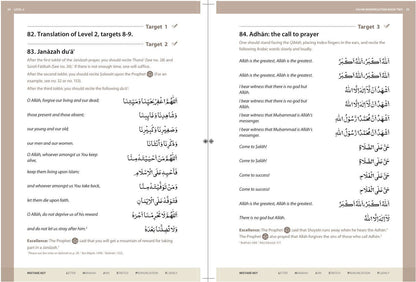 Target 1
82. Translation of Level 2, targets 8-9.
Target 2
83. Janāzah du'ā'
After the first takbīr of the janāzah prayer, you should recite Thanā' (See no. 28) and
Sūrah Fātiḥah (See no. 32). If there is not enough time, one will suffice.
After the second takbīr, you should recite Ṣalawāt upon the Prophet ﷺ (For an
example, see no. 50).
After the third takbīr, you should recite the following du'ā':
O Allāh, forgive our living and our dead;
اَللّٰهُمَّ اغْفِرْ لِحَيِّنَا وَمَيِّتِنَا
those present and those absent;
وَشَاهِدِنَا وَغَائِبِنَا
our young and our old;
وَصَغِيْرِنَا وَكَبِيْرِنَا
our men and our women.
وَذَكَرِنَا وَأُنْثَانَا
O Allāh, whoever amongst us You keep
alive,
اَللّٰهُمَّ مَنْ أَحْيَيْتَهُ مِنَّا
keep them living upon Islam;
فَأَحْيِهِ عَلَى الْإِسْلَامِ
and whoever amongst us You take back,
وَمَنْ تَوَفَّيْتَهُ مِنَّا
let them die upon faith.
فَتَوَفَّهُ عَلَى الْإِيْمَانِ
O Allāh, do not deprive us of his reward
اَللّٰهُمَّ لَا تَحْرِمْنَا أَجْرَهُ
and do not let us stray after him.
وَلَا تُضِلَّنَا بَعْدَهُ
Excellence: The Prophet ﷺ said that you will get a mountain of reward for taking
part in a janāzah.
MISTAKE KEY
Target 3
84. Adhān: the call to prayer
One should stand facing the Qiblah, placing index fingers in the ears, and recite the
following Arabic words slowly and loudly.
Allah is the greatest. Allah is the greatest.
اَللّٰهُ أَكْبَرُ اَللّٰهُ أَكْبَرُ
Allah is the greatest. Allah is the greatest.
اَللّٰهُ أَكْبَرُ اَللّٰهُ أَكْبَرُ
I bear witness that there is no god but
Allah.
أَشْهَدُ أَنْ لَّا إِلٰهَ إِلَّا اللّٰهُ
I bear witness that Muhammad is Allah's
messenger.
أَشْهَدُ أَنَّ مُحَمَّدًا رَّسُوْلُ اللّٰهِ
Come to Ṣalāh!
حَيَّ عَلَى الصَّلَاةِ
Come to Ṣalāh!
حَيَّ عَلَى الصَّلَاةِ
Come to success!
حَيَّ عَلَى الْفَلَاحِ
Come to success!
حَيَّ عَلَى الْفَلَاحِ
Allah is the greatest. Allah is the greatest.
اَللّٰهُ أَكْبَرُ اَللّٰهُ أَكْبَرُ
There is no god but Allah.
لَا إِلٰهَ إِلَّا اللّٰهُ
Excellence: The Prophet ﷺ said that Shayṭān runs away when he hears the Adhān.
The Prophet ﷺ also prayed that Allah forgives the sins of those who call Adhān.
MISTAKE KEY